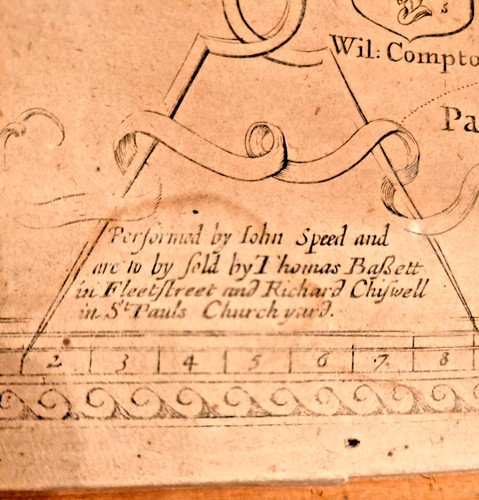 s
Wil: Compto
Pa
Performed by Iohn Speed and
are to by ſold by Thomas Baßett
in Fleetſtreet and Richard Chiſwell
in St. Pauls Church yard.
2 3 4 5 6 7 8